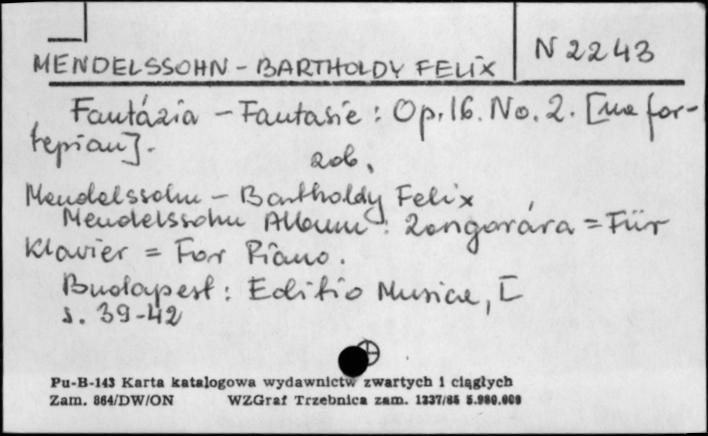 MENDELSSOHN - BARTHOLDY FELIX
N 2243
Fantázia - Fantasie : Op. 16. No. 2. [na for-
tepian].
zob.
Mendelssohn - Bartholdy Felix
Mendelssohn Album : Zongorára = Für
Klavier = For Piano.
Budapest : Editio Musica, [
s. 39-42
Pu-B-143 Karta katalogowa wydawnictw zwartych i ciągłych
Zam. 864/DW/ON WZGraf Trzebnica zam. 1337/85 5.980.000